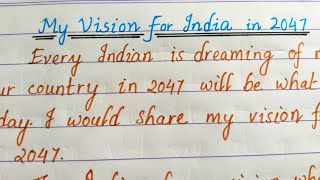 My Vision for India in 2047
Every Indian is dreaming of
ur country in 2047 will be what
day. I would share my vision f
2047.